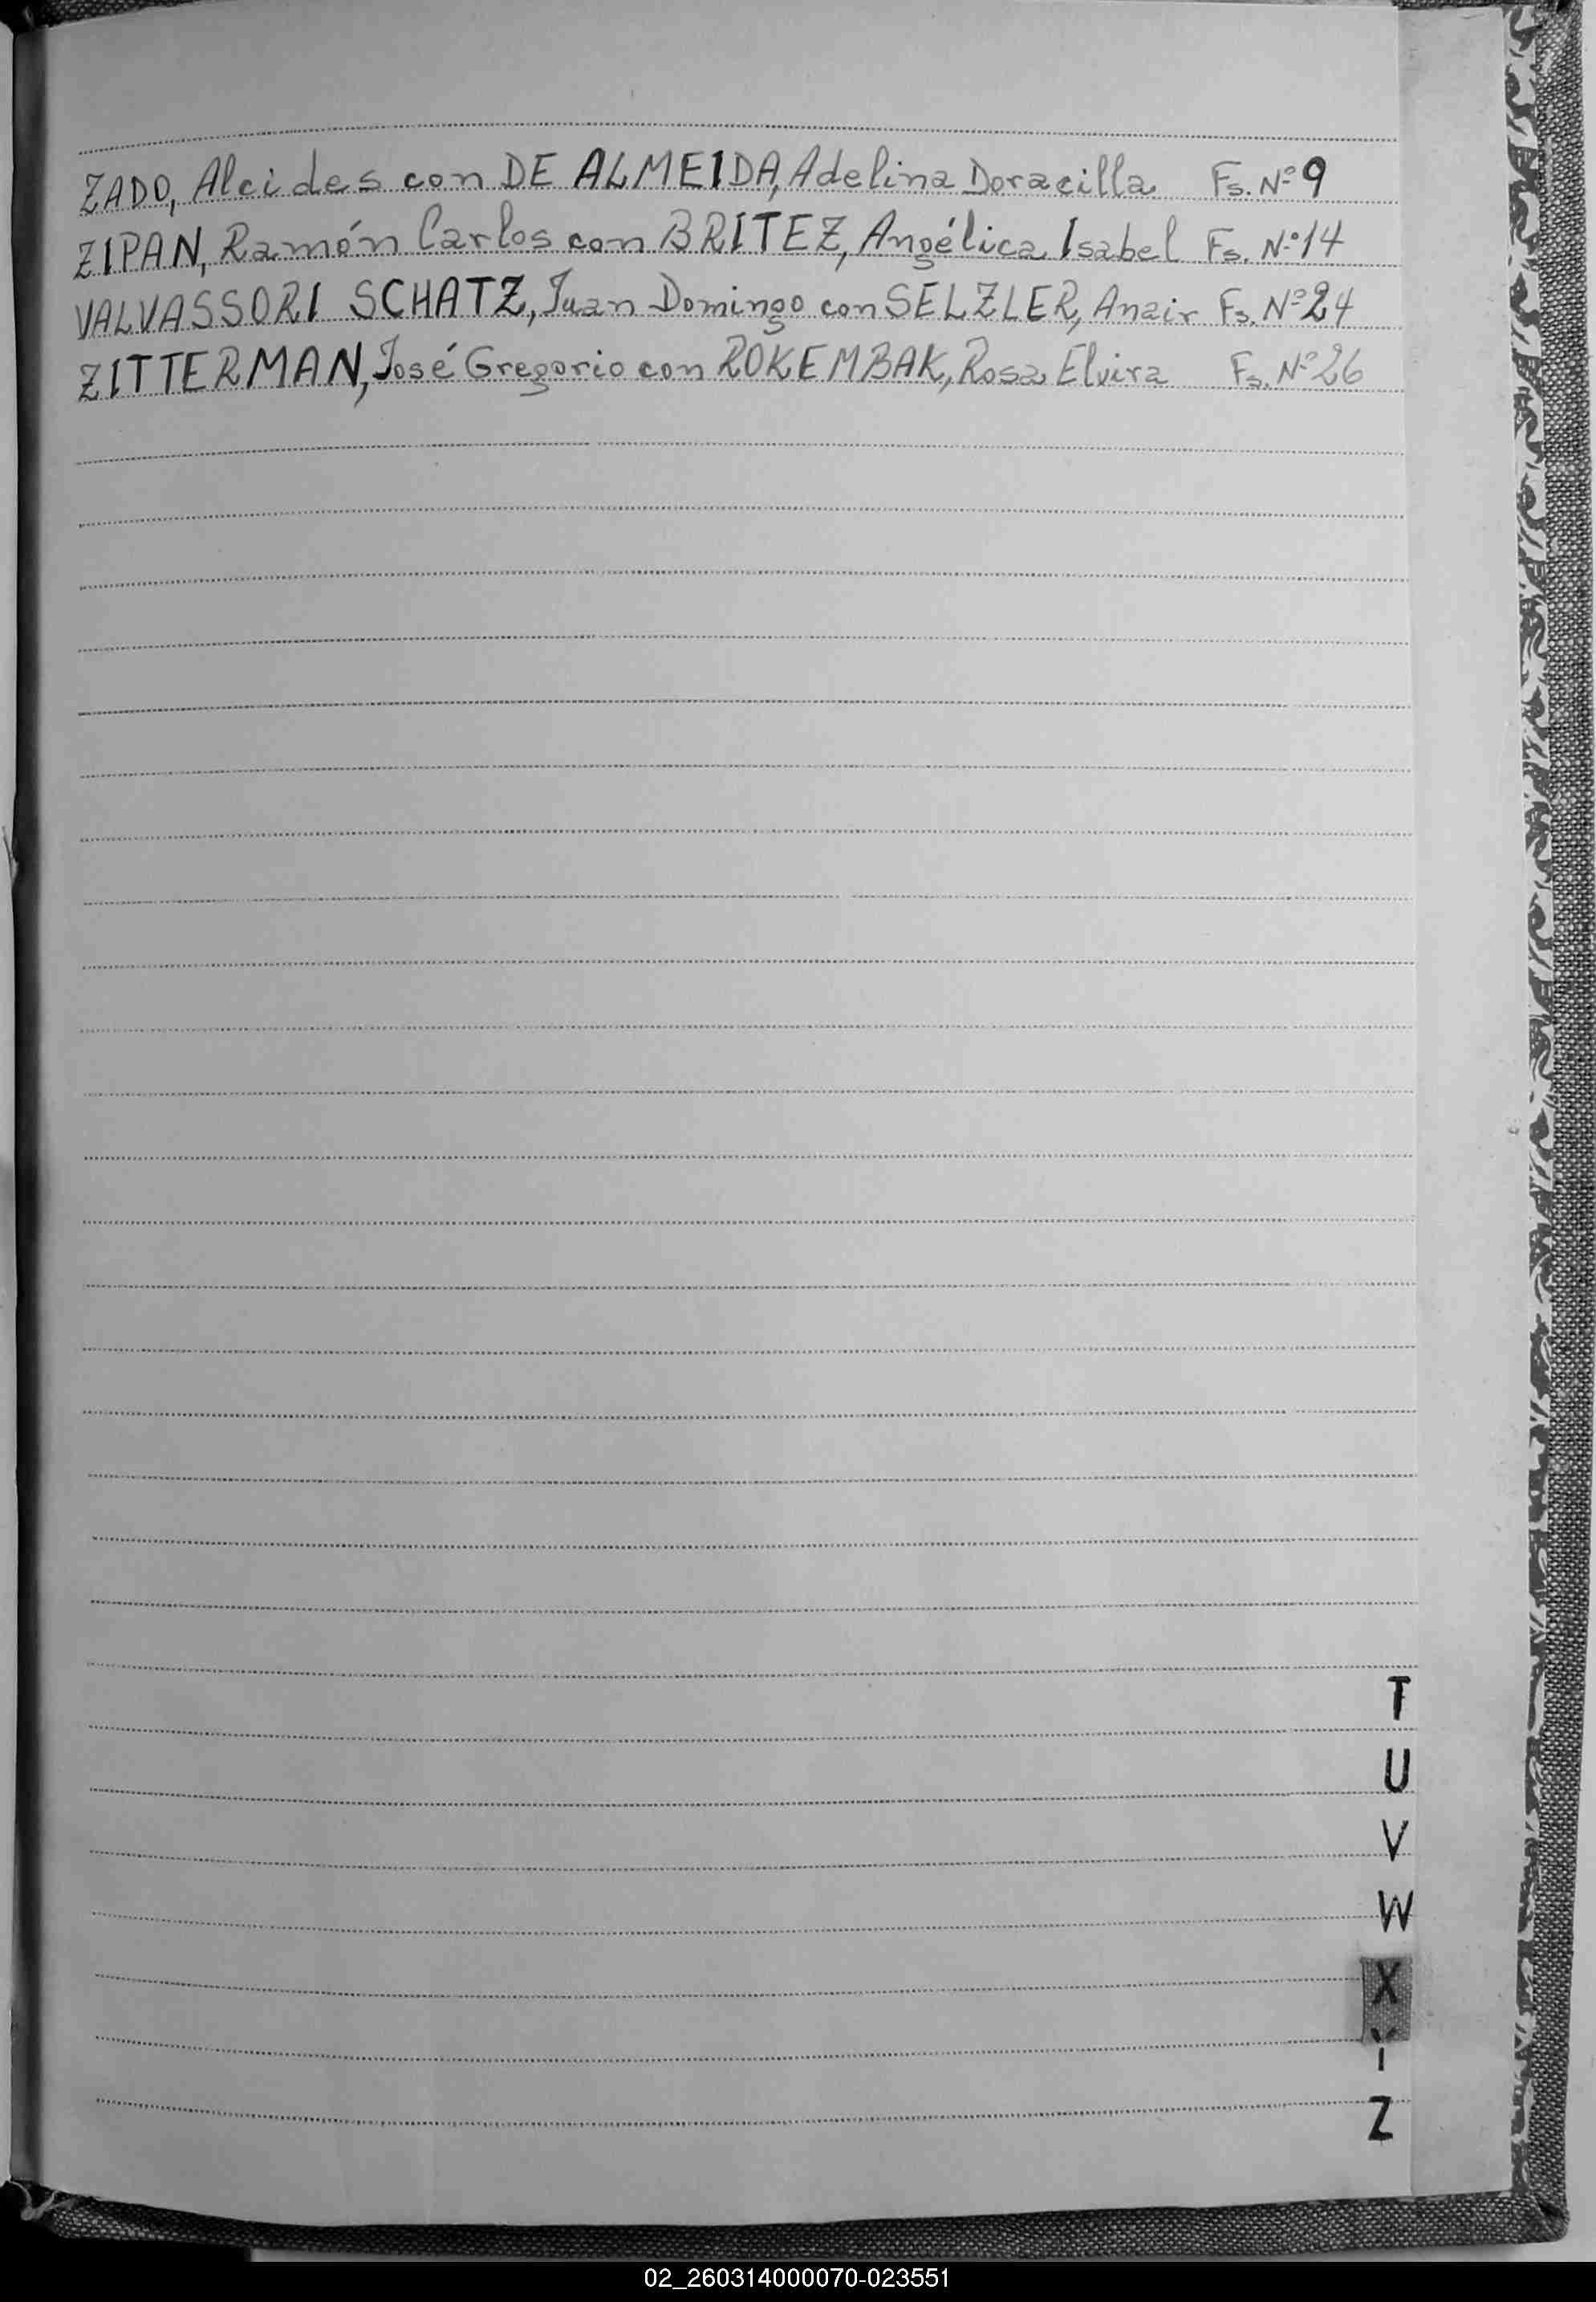 ZADO, Alcides con DE ALMEIDA, Adelina Doracilla Fs. Nº 9
ZIPAN, Ramón Carlos con BRITEZ, Angélica Isabel Fs. Nº 14
VALVASSORI SCHATZ, Juan Domingo con SELZLER, Anair Fs. Nº 24
ZITTERMAN, José Gregorio con ROKEMBAK, Rosa Elvira Fs. Nº 26
T
U
V
W
X
Y
Z
02_260314000070-023551